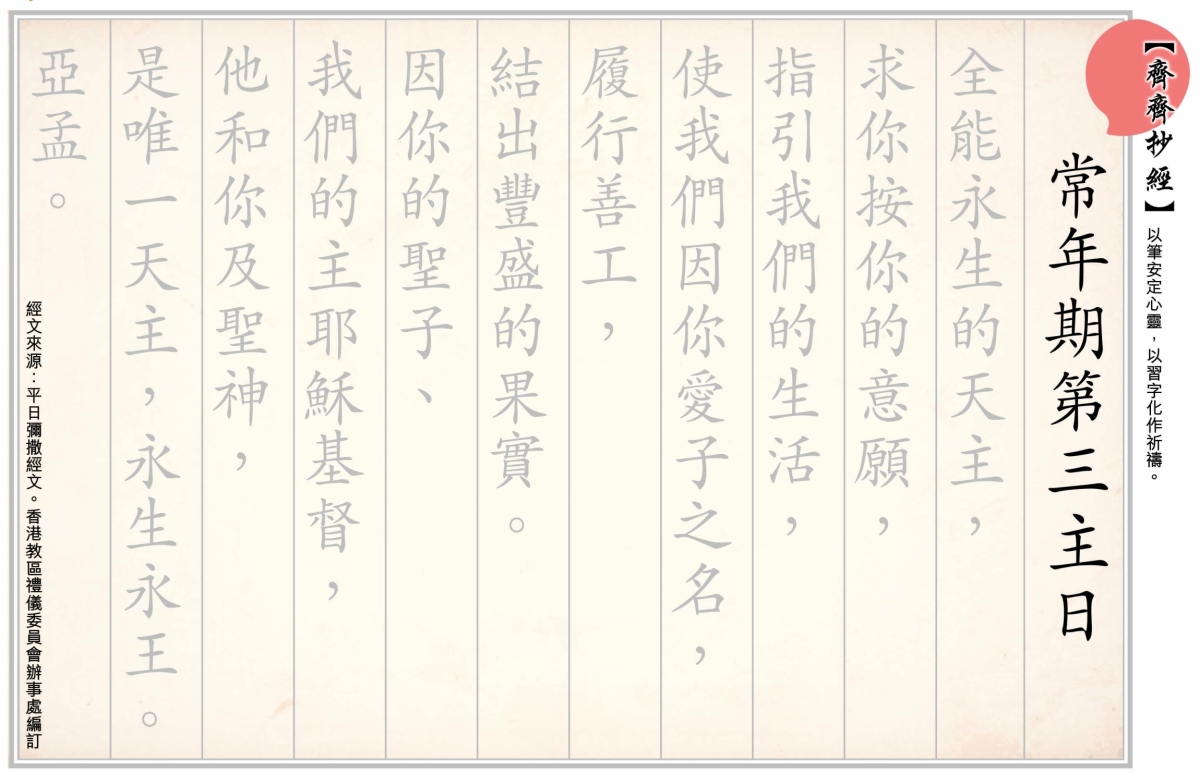 【齊齊抄經】以筆安定心靈，以習字化作祈禱。
常年期第三主日
全能永生的天主，
求你按你的意願，
指引我們的生活，
使我們因你愛子之名，
履行善工，
結出豐盛的果實。
因你的聖子、
我們的主耶穌基督，
他和你及聖神，
是唯一天主，永生永王。
亞孟。
經文來源：平日彌撒經文。香港教區禮儀委員會辦事處編訂